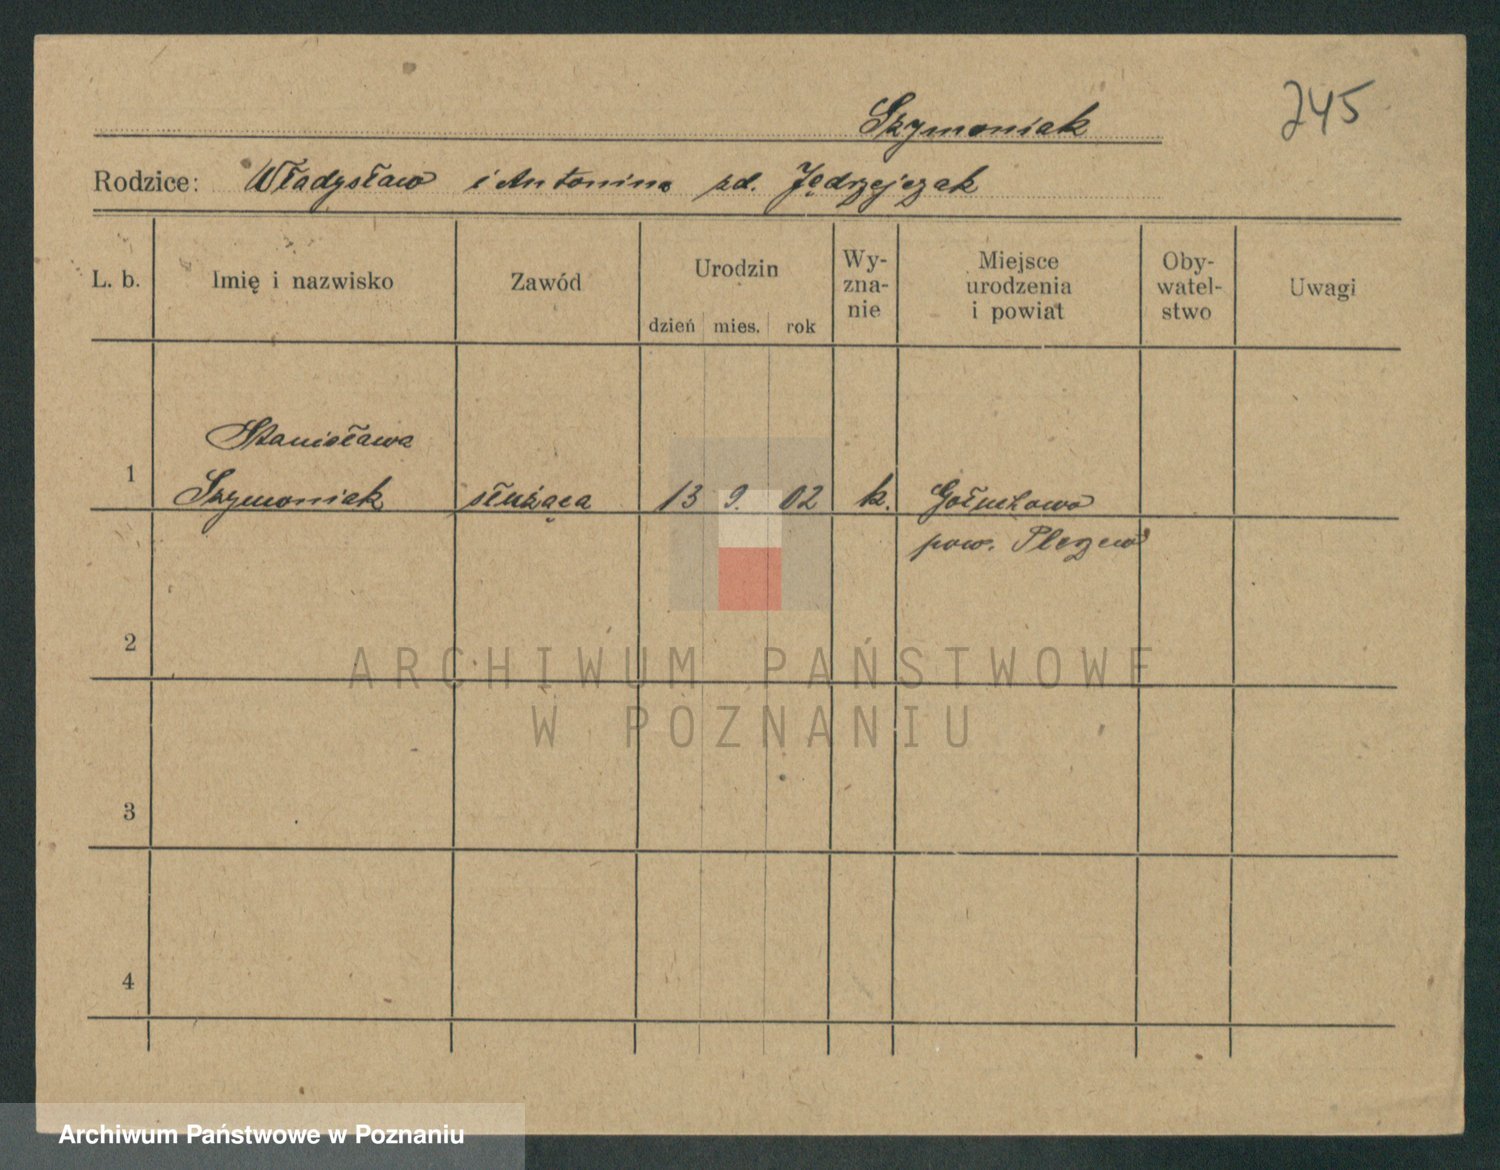 245
Szymoniak
Rodzice: Władysław i Antonina zd. Jędrzejczak
L. b. Imię i nazwisko Zawód Urodzin dzień mies. rok Wy-zna-nie Miejsce urodzenia i powiat Oby-watel-stwo Uwagi
Stanisława
1 Szymoniak służąca 13 9. 02 k. Gołuchowo
pow. Pleszew
2
ARCHIWUM PAŃSTWOWE
W POZNANIU
3
4
Archiwum Państwowe w Poznaniu